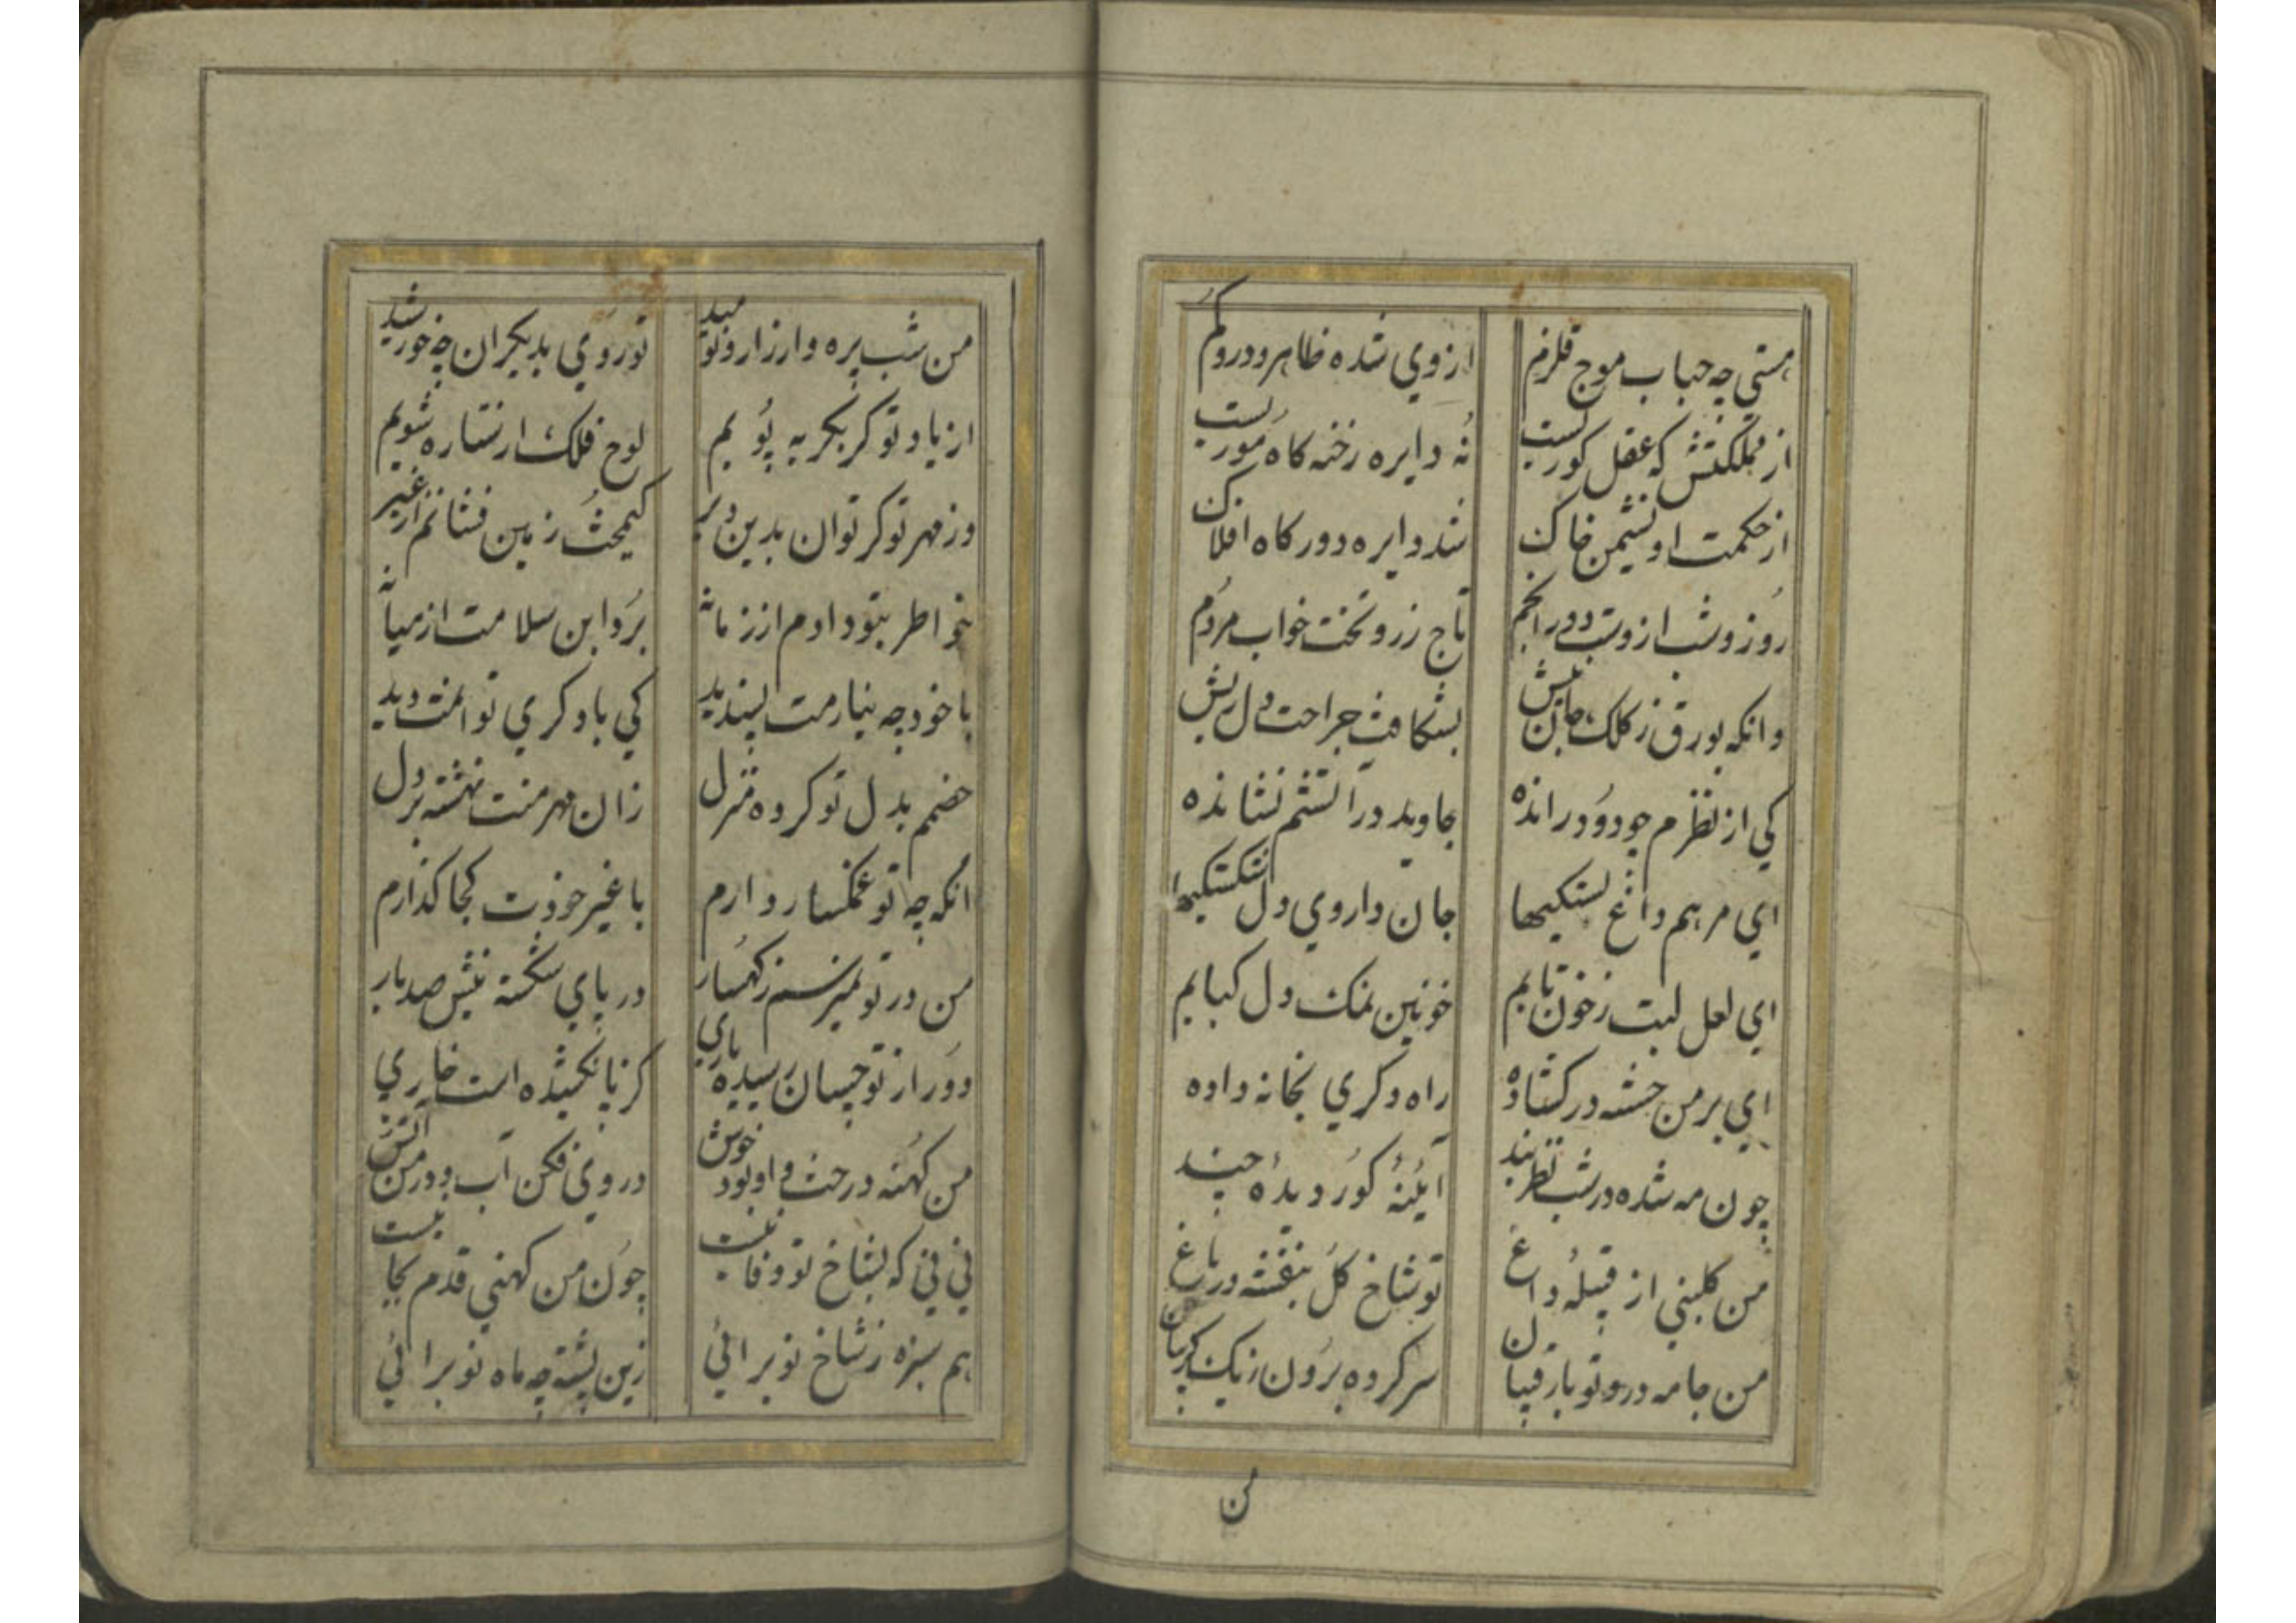 هستی چه حباب موج قلزم ازوی شده ظاهر و درو گم
از مملکتش که عقل کوریست نه دایره رخنه کاه موریست
از حکمت او نشیمن خاک شد دایره دور کاه افلاک
روز و شب از وست در انجم تاج زر و تخت خواب مردم
وانکه بورق ز کلک جانیش بشکافت جراحت دل ریش
کی از نظرم چو دود رانده جاوید در آتشم نشانده
ای مرهم داغ خستکیها جان داروی دل شکستکیها
ای لعل لبت ز خون نابم خونین نمک دل کبابم
ای بر من خسته در کشاده راه دکری بخانه داده
چون مه شده در شب نظربند آیئنهٔ کور دیدهٔ چند
من کلبنی از قبیلهٔ داغ تو شاخ کل بنفشه در باغ
من جامه در و تو با رقیبان سر کرده برون ز یک کریبان
من
من شب پره وار زار و نومید تو روی بدیکران چه خورشید
از یاد تو کر بکریه پویم لوح فلک از ستاره شویم
وز مهر تو کر توان بدین دیر یکمشت زمین فشانم از غیر
خواطر بتو دادم از زمانه برد این سلامت از میانه
با خود چه بنا رمت پسندید کی یاد کری توانمت دید
خصمم بدل تو کرده منزل زان مهر منت نهشته بر دل
انکه چه تو غمکسار دارم با غیر خودت کجا کذارم
من در تو نمیرسم ز کهسار در پای شکسته نیش صد بار
دور از تو چسان رسیده یاری کز پا نکشیده است خاری
من کهنه درخت و او بود خوش در وی فکن آب و در من آتش
نی نی که بشاخ تو وفا نیست چون من کهنی قدم بجا نیست
هم سبزه ز شاخ نو برائی زین پشته چه ماه نو برائی